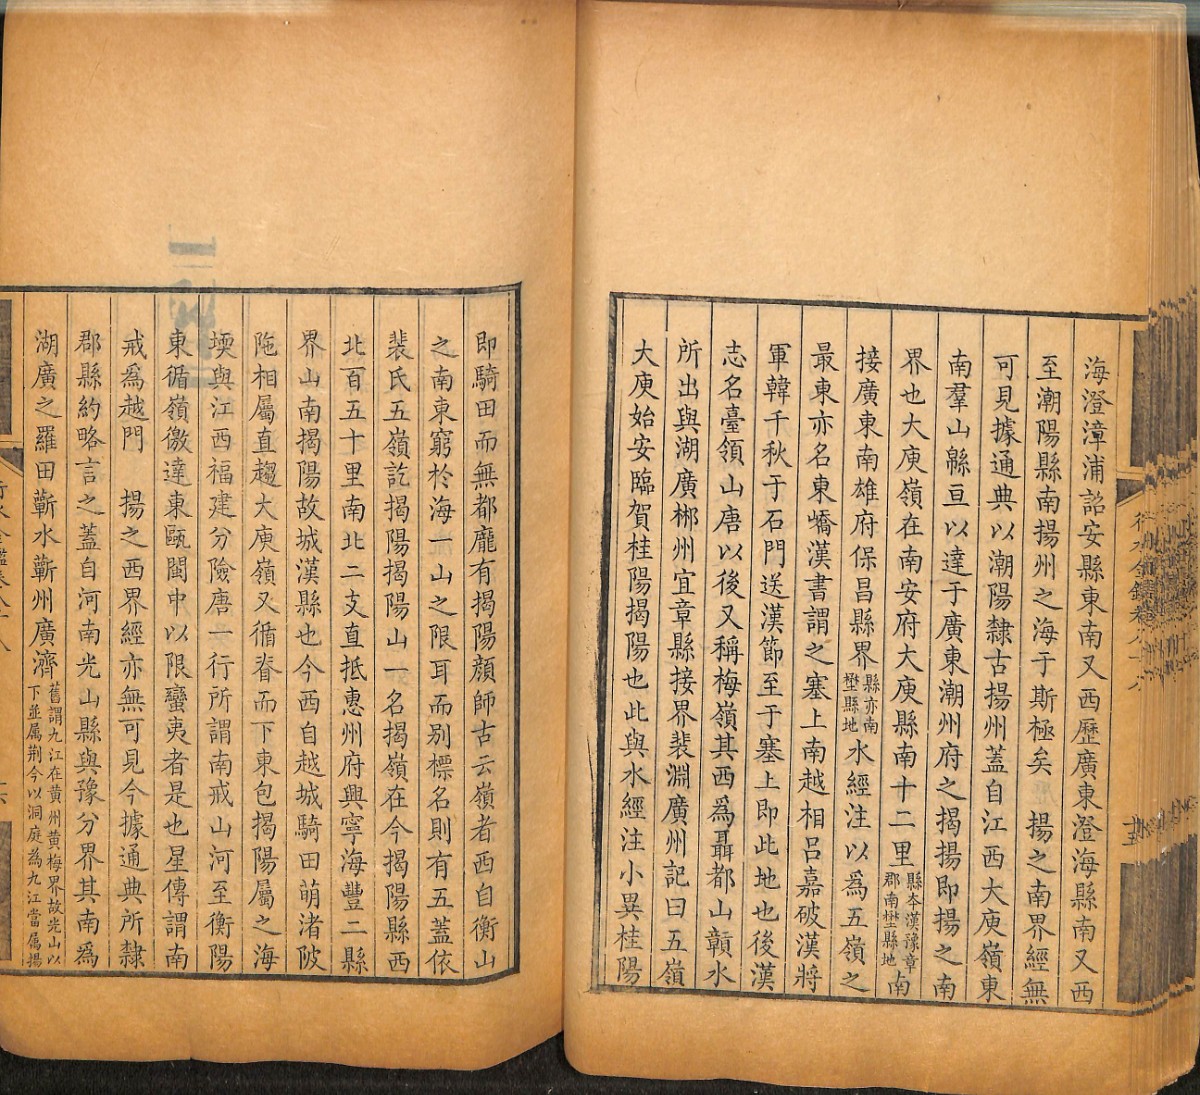 海澄漳浦詔安縣東南又西歷廣東澄海縣南又西
至潮陽縣南揚州之海于斯極矣　揚之南界經無
可見據通典以潮陽隸古揚州蓋自江西大庾嶺東
南羣山緜亘以達于廣東潮州府之揭揚即揚之南
界也大庾嶺在南安府大庾縣南十二里縣本漢豫章郡南壄縣地南
接廣東南雄府保昌縣界縣亦南壄縣地水經注以為五嶺之
最東亦名東嶠漢書謂之塞上南越相呂嘉破漢將
軍韓千秋于石門送漢節至于塞上即此地也後漢
志名臺領山唐以後又稱梅嶺其西爲聶都山贛水
所出與湖廣郴州宜章縣接界裴淵廣州記曰五嶺
大庾始安臨賀桂陽揭陽也此與水經注小異桂陽
即騎田而無都龐有揭陽顔師古云嶺者西自衡山
之南東窮於海一山之限耳而别標名則有五蓋依
裴氏五嶺訖揭陽揭陽山一名揭嶺在今揭陽縣西
北百五十里南北二支直抵惠州府興寧海豐二縣
界山南揭陽故城漢縣也今西自越城騎田萌渚陂
陁相屬直趨大庾嶺又循脊而下東包揭陽屬之海
堧與江西福建分險唐一行所謂南戒山河至衡陽
東循嶺徼達東甌閩中以限蠻夷者是也星傳謂南
戒爲越門　揚之西界經亦無可見今據通典所隸
郡縣約略言之蓋自河南光山縣與豫分界其南爲
湖廣之羅田蘄水蘄州廣濟舊謂九江在黄州黄梅界故光山以下並属荆今以洞庭為九江當属揚